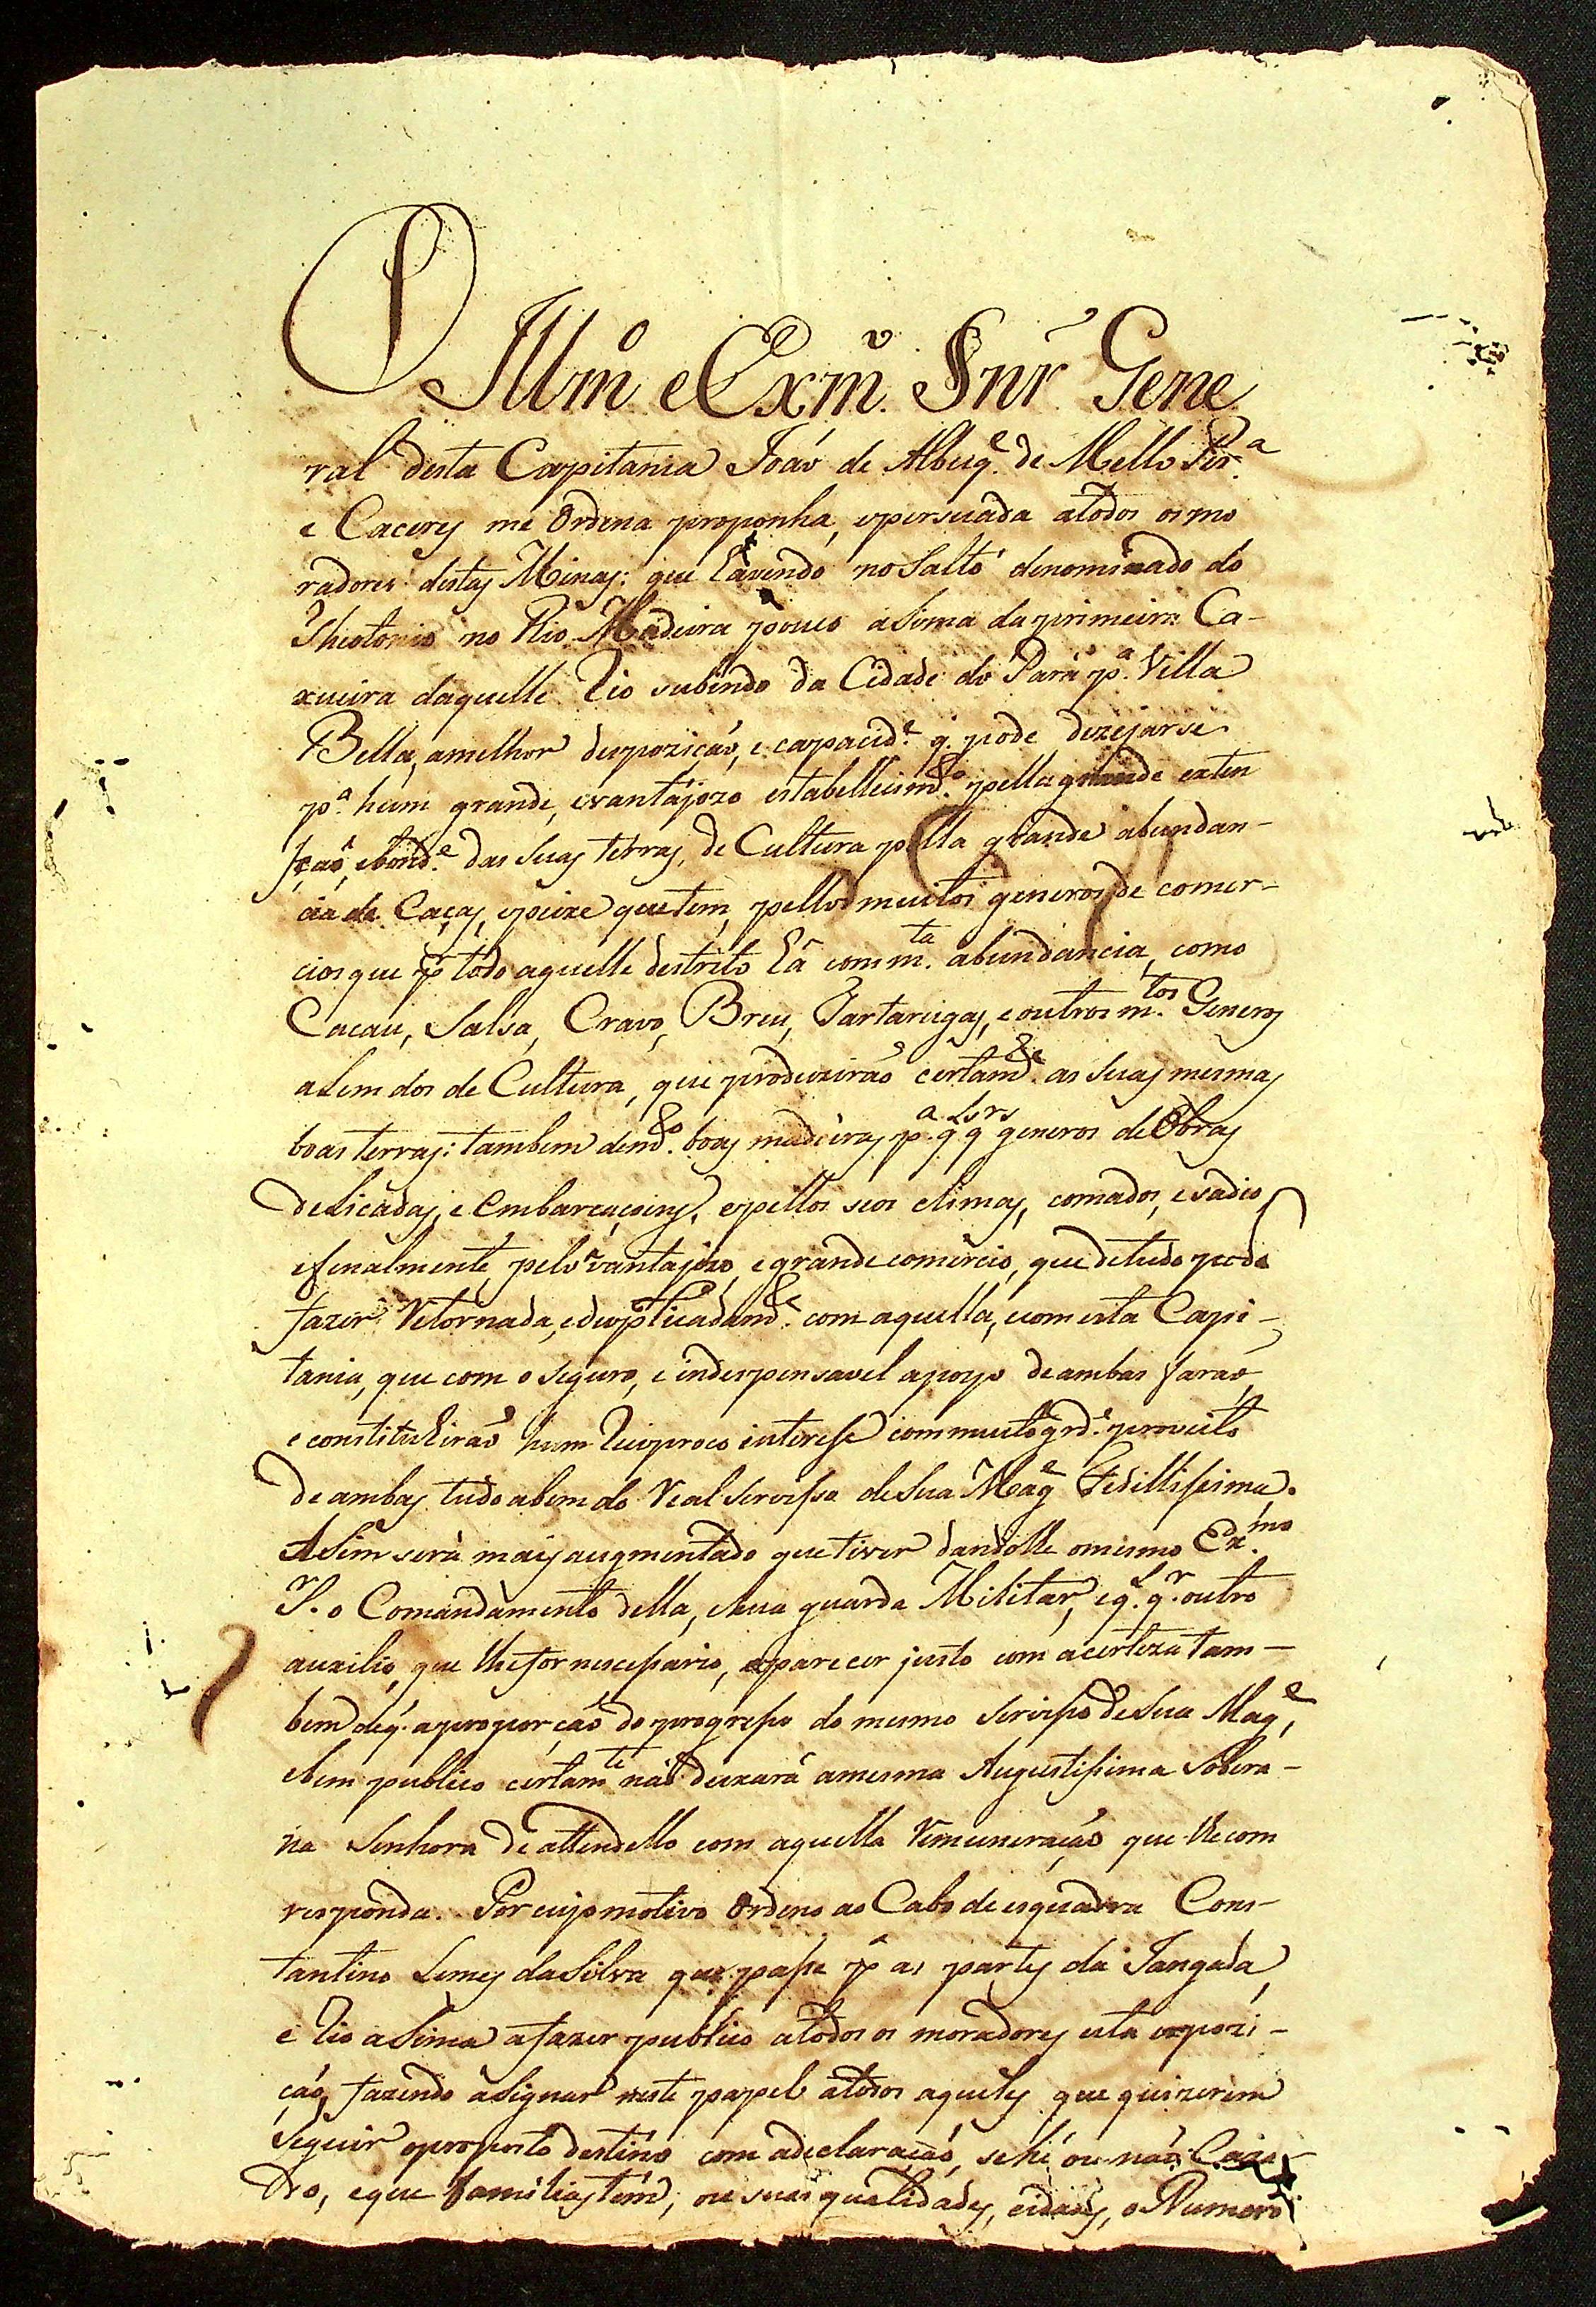 O Illmº e Exmº. Snr' Gene
ral desta Capitania Joáo de Albuqe. de Mello Per.ª
e Caceres me Ordena proponha, epersuada atodos os mo
radores destas Minas: que havendo no Salto denominado do
Theotonio no Rio Madeira pouco asima da primeira Ca-
xueira daquelle Rio subindo da Cidade do Pará pª. Villa
Bella, amelhor despozicáo, e capacid.e q. pode dezejarse
pª. hum grande, evantajozo estabellecimto. pella grande exten
ção, ebond.e das suas terras, de Cultura pella grande abundan-
cia de Caças, epeixe que tem, pellos muitos generos de comer-
cios que pr todo aquelle destrito há comm.ta abundancia, como
Cacau, Salsa, Cravo, Breu, Tartarugas, e outros m.tos Generos
alem dos de Cultura, que produzirão certamte. as suas mesmas
boas terras: tambem dendo. boas madeiras pª. qlqrs generos de Obras
delicadas, e Embarcaçoins, epellos seos climas, comados, e sadios
efenalmente, pelo vantajozo, e grande comercio, que detudo pode
fazer Retornada, eduplicadamte. com aquella, ecom esta Capi-
tania, que com o seguro, e indespensavel apoyo de ambas farao,
e constituhiráo hum Reciproco interesse commuito grd.e proveito
de ambas, tudo abem do Real Servisso de Sua Mage Fidillissima.
ASim será mais augmentado que tiver dandolle omesmo Ex.mo
Sr. o Comandamento della, ehua guarda Militar, eq.lq.r outro
auxilio, que lhe for nescessario, eparecer justo com acerteza tam-
bem deq. aproporção do progresso do mesmo Servisso de Sua Mage,
ebem publico certamte não deixará amesma Augustissima Sobera-
na Senhora de attendello com aquella Remuneração que lhe com
responda. Por cujo motivo Ordeno ao Cabo de esquadra Cons-
tantino Lemes da Silva que passe pr as partes da Jangada,
e Rio aSima afazer publico atodos os moradores esta expozi-
cáo, fazendo aSignar neste papel atodos aqueles que quizerem
Seguir oproposto destino com adeclaração, se hé ou não Caza-
do, eque familias tem, ou suas qualidades, eidades, o Numero